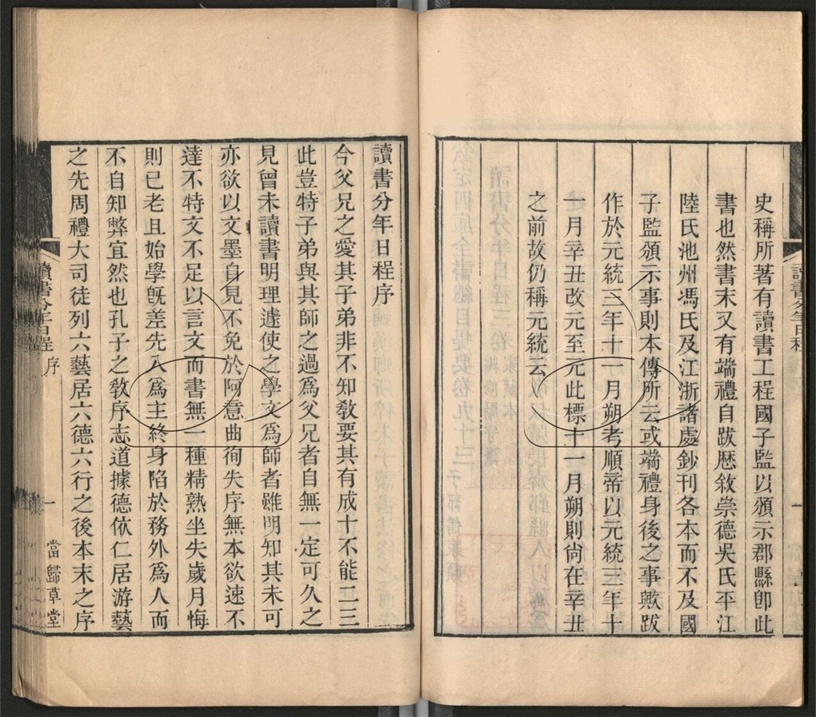 史稱所著有讀書工程國子監以頒示郡縣卽此
書也然書末又有端禮自跋歷敘崇德吳氏平江
陸氏池州馮氏及江浙諸處鈔刊各本而不及國
子監頒示事則本傳所云或端禮身後之事歟跋
作於元統三年十一月朔考順帝以元統三年十
一月辛丑改元至元此標十一月朔則尙在辛丑
之前故仍稱元統云
讀書分年日程序
今父兄之愛其子弟非不知敎要其有成十不能二三
此豈特子弟與其師之過爲父兄者自無一定可久之
見曾未讀書明理遽使之學文爲師者雖明知其未可
亦欲以文墨自見不免於阿意曲徇失序無本欲速不
達不特文不足以言文而書無一種精熟坐失歲月悔
則已老且始學旣差先入爲主終身陷於務外爲人而
不自知弊宜然也孔子之敎序志道據德依仁居游藝
之先周禮大司徒列六藝居六德六行之後本末之序
讀書分年日程 序
一
當歸草堂